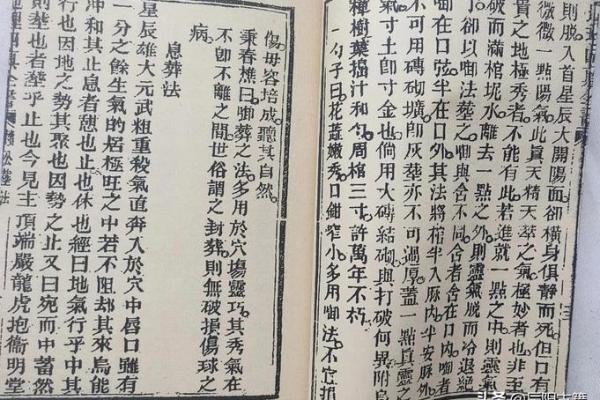 則脫入首星辰大開陽面卻橫身俱靜而死但口有
微微一點陽氣此真天精天萃之氣極妙者也非至
貴之地極秀者不能有此若進就一點之中則靈氣
破而滿棺坭水離去一點之外則靈氣脫而冷退絕
安以啣法塟之啣與舍不同舍者舍在口內啣者
啣在口弦半在口外其法將棺半入脈內半安脈外
不可用磚砌壙卽灰塟亦不可過厚蓋一點真靈之
氣寸土卽寸金也倘用火磚結砌與打破何異附鳥
種樹葉搗汁和勺周棺三寸許萬年不朽
一勺子曰花蕋嫩秀口鉗窄小多用啣法不宜
傷毋容培成聽其自然
秉春樵曰啣塟之法多用於穴塲靈巧其秀氣在
不卽不離之間世俗謂之封塟則無破損傷球之
病
息塟法
星辰雄大元武粗重殺氣直奔入於穴中唇口雖有
一分之餘生氣的居極旺之中若不阻却其來烏能
冲和其止息者憩也止也休也經曰地氣行乎中其
行也因地之勢其聚也因勢之止又曰宛而中蓄然
則塟也者塟乎止也今見主頂端嚴龍虎抱衞明堂